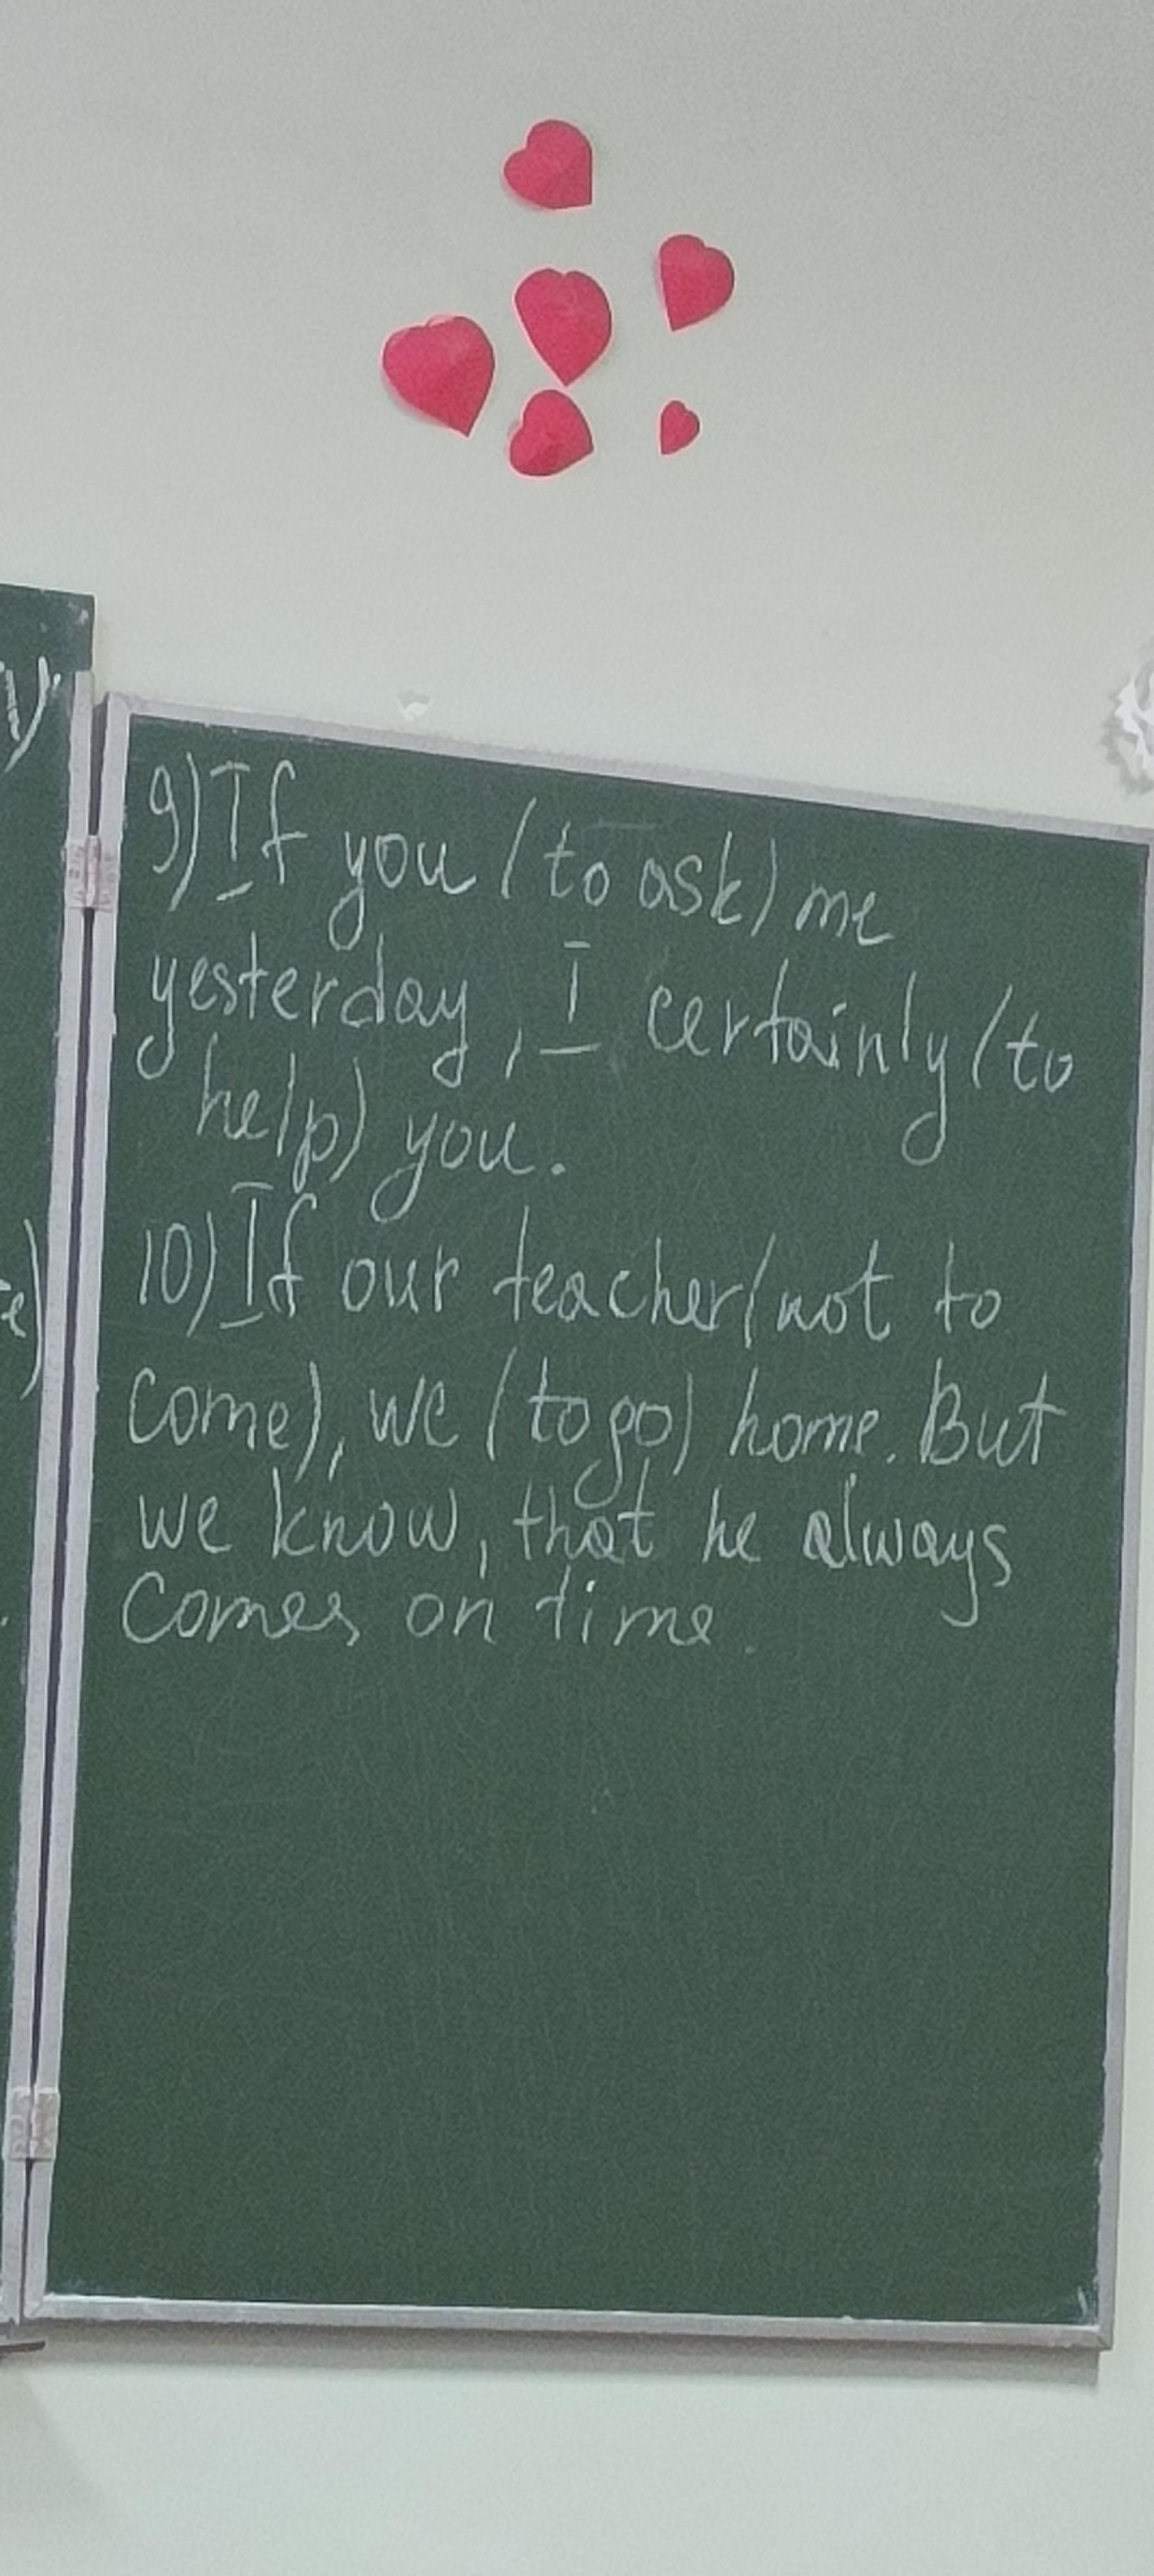 y
9) If you (to ask) me
yesterday, I certainly (to
help) you.
10) If our teacher (not to
come), we (to go) home. But
we know, that he always
comes on time.